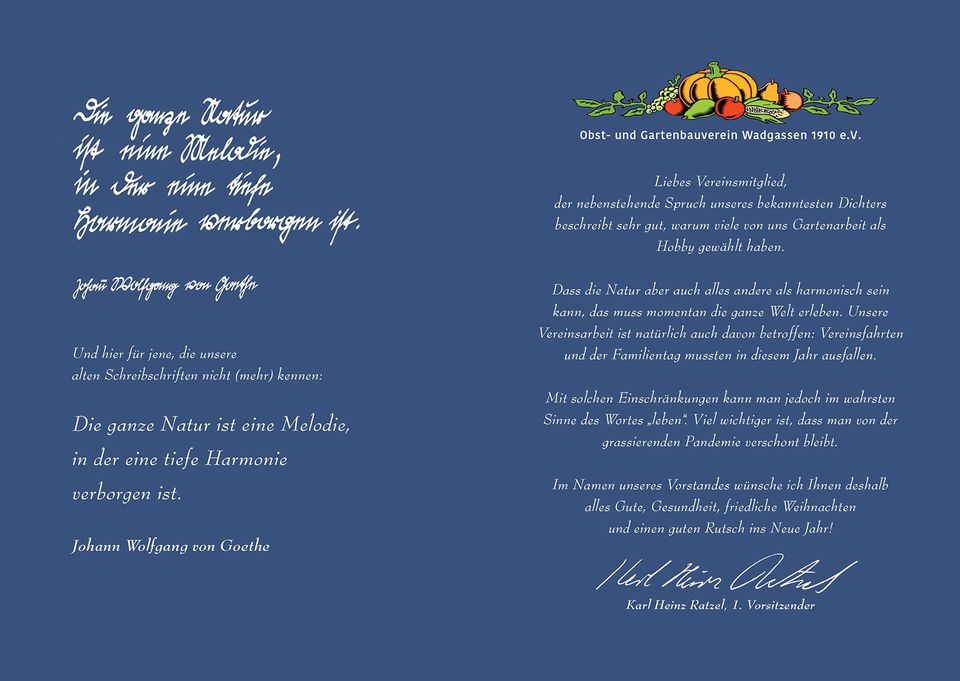 Die ganze Natur
ist eine Melodie,
in der eine tiefe
Harmonie verborgen ist.
Johann Wolfgang von Goethe
Und hier für jene, die unsere
alten Schreibschriften nicht (mehr) kennen:
Die ganze Natur ist eine Melodie,
in der eine tiefe Harmonie
verborgen ist.
Johann Wolfgang von Goethe
Obst- und Gartenbauverein Wadgassen 1910 e.V.
Liebes Vereinsmitglied,
der nebenstehende Spruch unseres bekanntesten Dichters
beschreibt sehr gut, warum viele von uns Gartenarbeit als
Hobby gewählt haben.
Dass die Natur aber auch alles andere als harmonisch sein
kann, das muss momentan die ganze Welt erleben. Unsere
Vereinsarbeit ist natürlich auch davon betroffen: Vereinsfahrten
und der Familientag mussten in diesem Jahr ausfallen.
Mit solchen Einschränkungen kann man jedoch im wahrsten
Sinne des Wortes „leben“. Viel wichtiger ist, dass man von der
grassierenden Pandemie verschont bleibt.
Im Namen unseres Vorstandes wünsche ich Ihnen deshalb
alles Gute, Gesundheit, friedliche Weihnachten
und einen guten Rutsch ins Neue Jahr!
Karl Heinz Ratzel
Karl Heinz Ratzel, 1. Vorsitzender